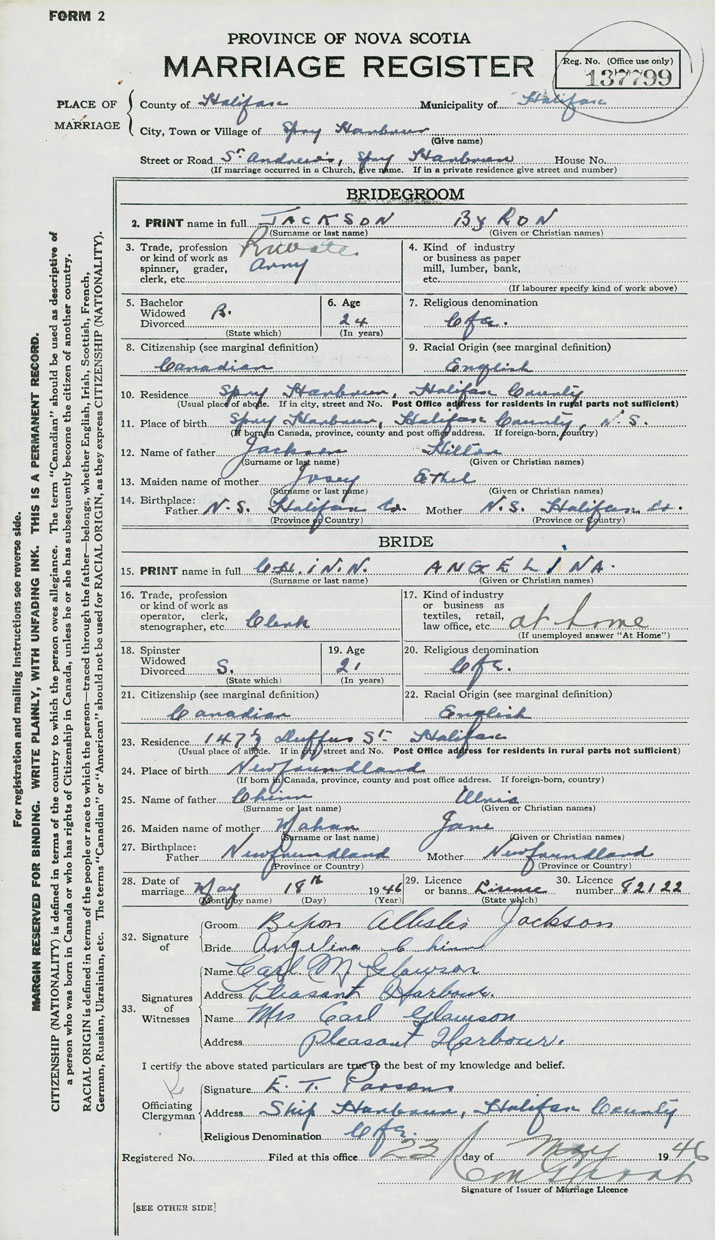 FORM 2
PROVINCE OF NOVA SCOTIA
MARRIAGE REGISTER
Reg. No. (Office use only)
137799
PLACE OF MARRIAGE
County of Halifax Municipality of Halifax
City, Town or Village of Spry Harbour
(Give name)
Street or Road St. Andrew's, Spry Harbour House No.
(If marriage occurred in a Church, give name. If in a private residence give street and number)
BRIDEGROOM
2. PRINT name in full JACKSON BYRON
(Surname or last name) (Given or Christian names)
3. Trade, profession or kind of work as spinner, grader, clerk, etc. Private Army
4. Kind of industry or business as paper mill, lumber, bank, etc.
(If labourer specify kind of work above)
5. Bachelor Widowed Divorced B.
(State which)
6. Age 24
(In years)
7. Religious denomination C of E.
8. Citizenship (see marginal definition) Canadian
9. Racial Origin (see marginal definition) English
10. Residence Spry Harbour, Halifax County
(Usual place of abode. If in city, street and No. Post Office address for residents in rural parts not sufficient)
11. Place of birth Spry Harbour, Halifax County, N.S.
(If born in Canada, province, county and post office address. If foreign-born, country)
12. Name of father Jackson Hilton
(Surname or last name) (Given or Christian names)
13. Maiden name of mother Josey Ethel
(Surname or last name) (Given or Christian names)
14. Birthplace: Father N.S. Halifax Co. Mother N.S. Halifax Co.
(Province or Country) (Province or Country)
BRIDE
15. PRINT name in full CHINN ANGELINA
(Surname or last name) (Given or Christian names)
16. Trade, profession or kind of work as operator, clerk, stenographer, etc. Clerk
17. Kind of industry or business as textiles, retail, law office, etc. at home
(If unemployed answer "At Home")
18. Spinster Widowed Divorced S.
(State which)
19. Age 21
(In years)
20. Religious denomination C of E.
21. Citizenship (see marginal definition) Canadian
22. Racial Origin (see marginal definition) English
23. Residence 147½ Duffus St Halifax
(Usual place of abode. If in city, street and No. Post Office address for residents in rural parts not sufficient)
24. Place of birth Newfoundland
(If born in Canada, province, county and post office address. If foreign-born, country)
25. Name of father Chinn
(Surname or last name) (Given or Christian names)
26. Maiden name of mother Mahan Jane
(Surname or last name) (Given or Christian names)
27. Birthplace: Father Newfoundland Mother Newfoundland
(Province or Country) (Province or Country)
28. Date of marriage May 18th 1946
(Month by name) (Day) (Year)
29. Licence or banns License
(State which)
30. Licence number 82122
32. Signature of
Groom Jackson
Bride Angelina Chinn
33. Signatures of Witnesses
Name Carl M Glawson
Address Pleasant Harbour.
Name Mrs Carl Glawson
Address Pleasant Harbour.
I certify the above stated particulars are true to the best of my knowledge and belief.
Officiating Clergyman
Signature E. T. Parsons
Address Ship Harbour, Halifax County
Religious Denomination C of E.
Registered No. Filed at this office 23 day of May 1946
Signature of Issuer of Marriage Licence
[SEE OTHER SIDE]
For registration and mailing instructions see reverse side.
MARGIN RESERVED FOR BINDING. WRITE PLAINLY, WITH UNFADING INK. THIS IS A PERMANENT RECORD.
CITIZENSHIP (NATIONALITY) is defined in terms of the country to which the person owes allegiance. The term "Canadian" should be used as descriptive of
a person who was born in Canada or who has rights of Citizenship in Canada, unless he or she has subsequently become the citizen of another country.
RACIAL ORIGIN is defined in terms of the people or race to which the person—traced through the father—belongs, whether English, Irish, Scottish, French,
German, Russian, Ukrainian, etc. The terms "Canadian" or "American" should not be used for RACIAL ORIGIN, as they express CITIZENSHIP (NATIONALITY).